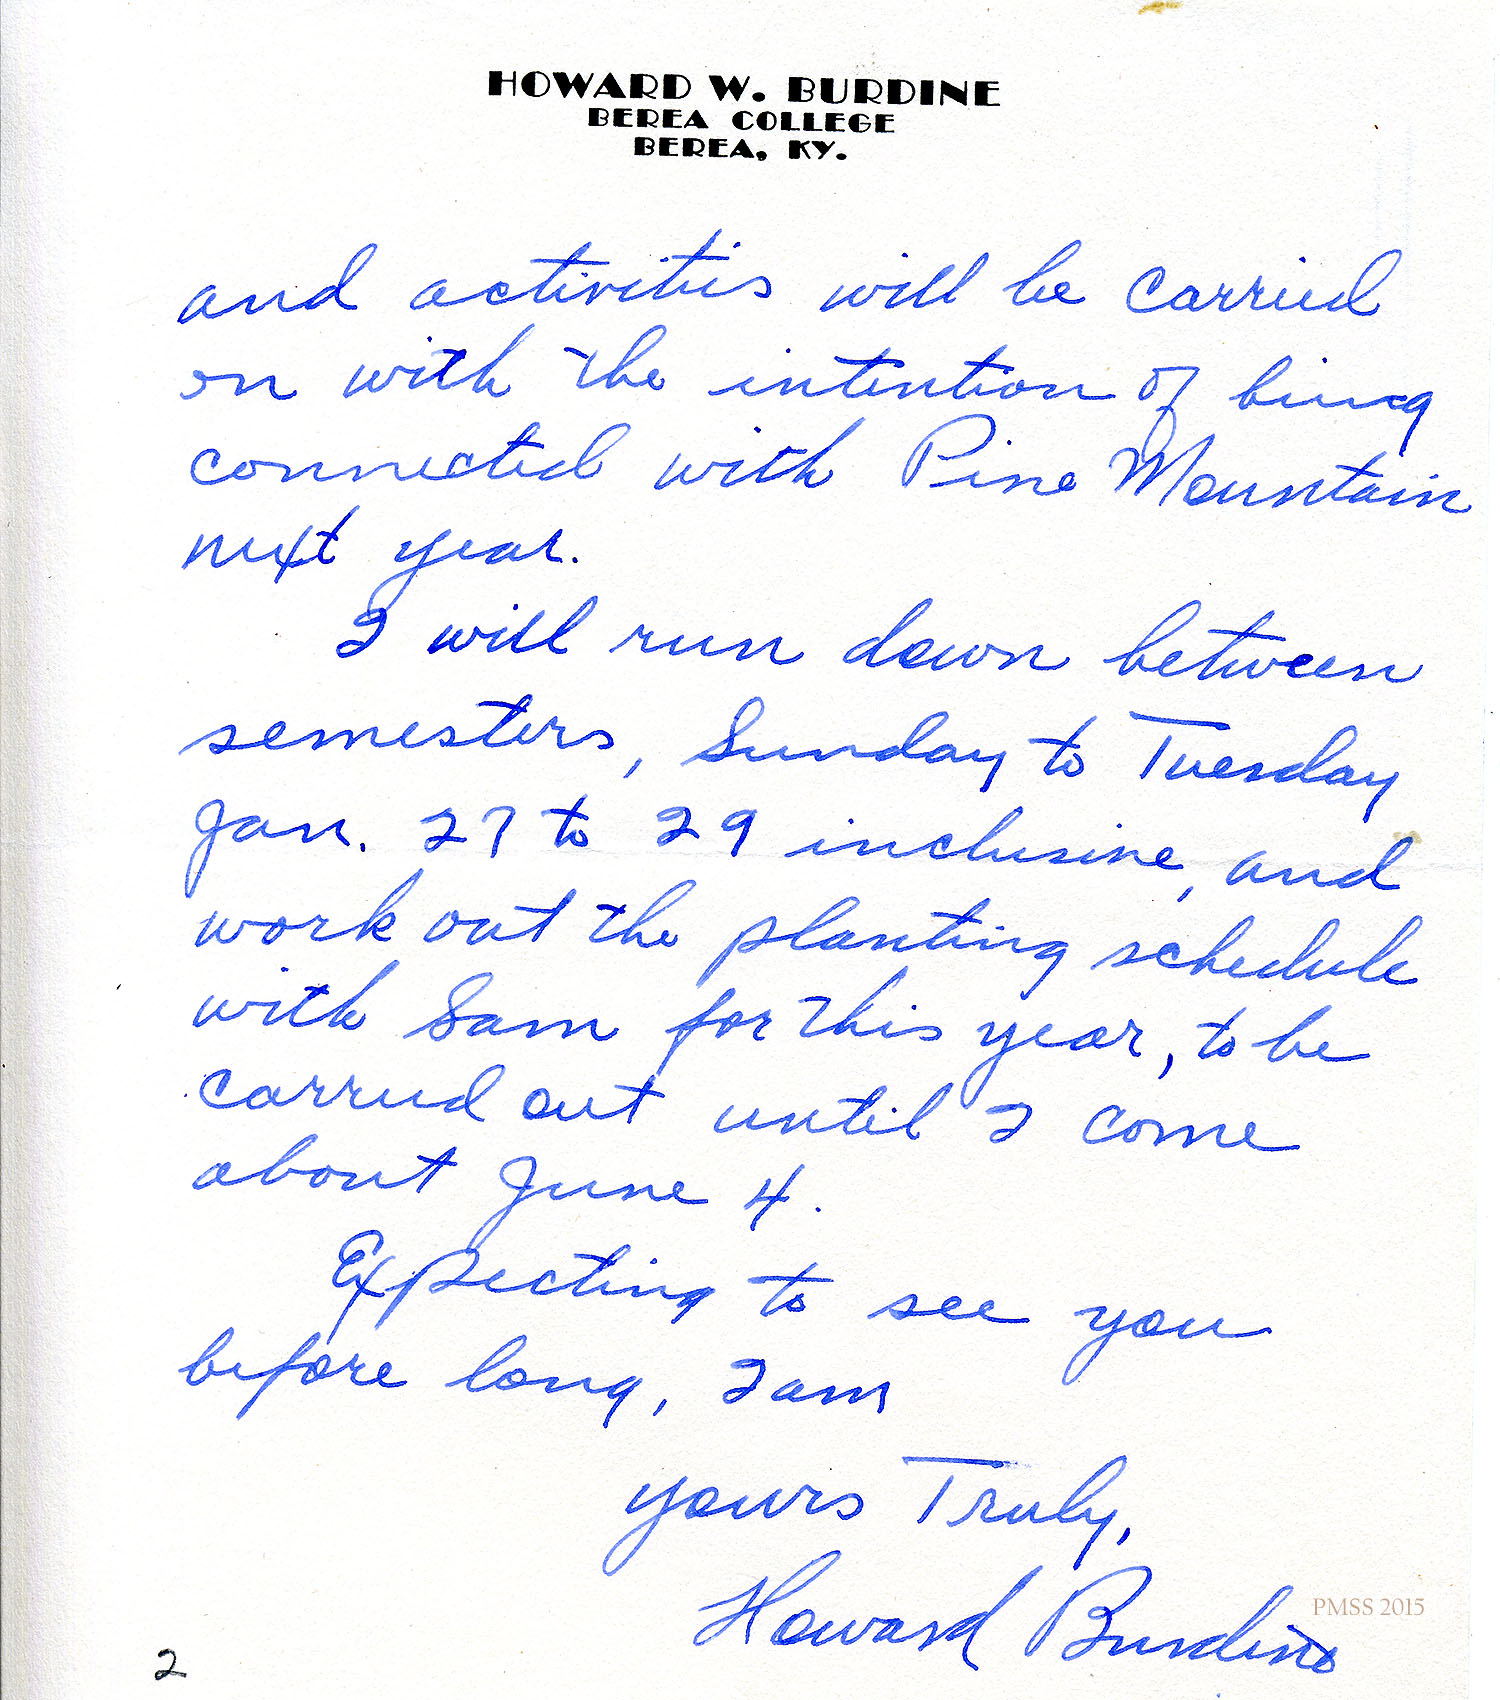 HOWARD W. BURDINE
BEREA COLLEGE
BEREA, KY.
and activities will be carried
on with the intention of being
connected with Pine Mountain
next year.
I will run down between
semesters, Sunday to Tuesday
Jan. 27 to 29 inclusive, and
work out the planting schedule
with Sam for this year, to be
carried out until I come
about June 4.
Expecting to see you
before long, I am
yours Truly,
Howard Burdine
PMSS 2015
2